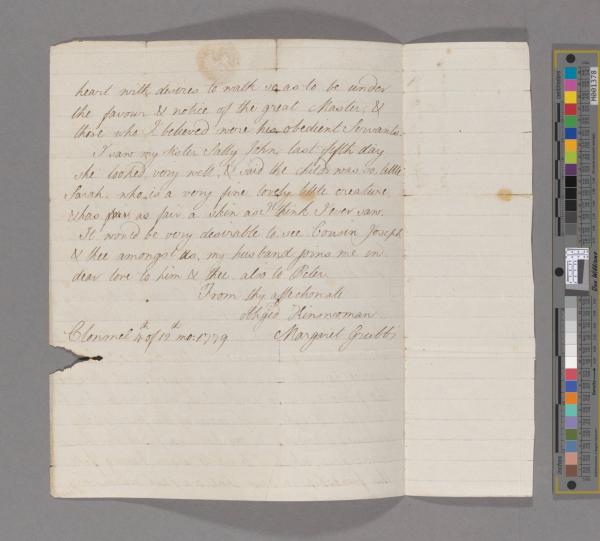 heart with desires to walk so as to be under
the favour & notice of the great Master, &
those who I believed were his obedient Servants.
I saw my sister Sally John last fifth day
she looked very well, & said the child was so, little
Sarah who is a very fine lovely little creature
& has as fair a skin as I think I ever saw.
It would be very desirable to see Cousin Joseph
& thee amongst us, my husband joins me in
dear love to him & thee also to Peter
From thy affectionate
obliged Kinswoman
Clonmel 4th of 12th mo: 1779 Margaret Grubb
M001378